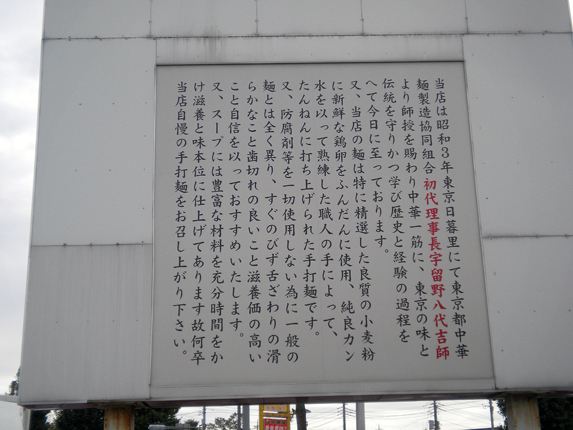 当店は昭和３年東京日暮里にて東京都中華
麺製造協同組合初代理事長宇留野八代吉師
より師授を賜わり中華一筋に、東京の味と
伝統を守りかつ学び歴史と経験の過程を
へて今日に至っております。
又、当店の麺は特に精選した良質の小麦粉
に新鮮な鶏卵をふんだんに使用、純良カン
水を以って熟練した職人の手によって、
たんねんに打ち上げられた手打麺です。
又、防腐剤等を一切使用しない為に一般の
麺とは全く異り、すぐのびず舌ざわりの滑
らかなこと歯切れの良いこと滋養価の高い
こと自信を以っておすすめいたします。
又、スープには豊富な材料を充分時間をか
け滋養と味本位に仕上げてあります故何卒
当店自慢の手打麺をお召し上がり下さい。